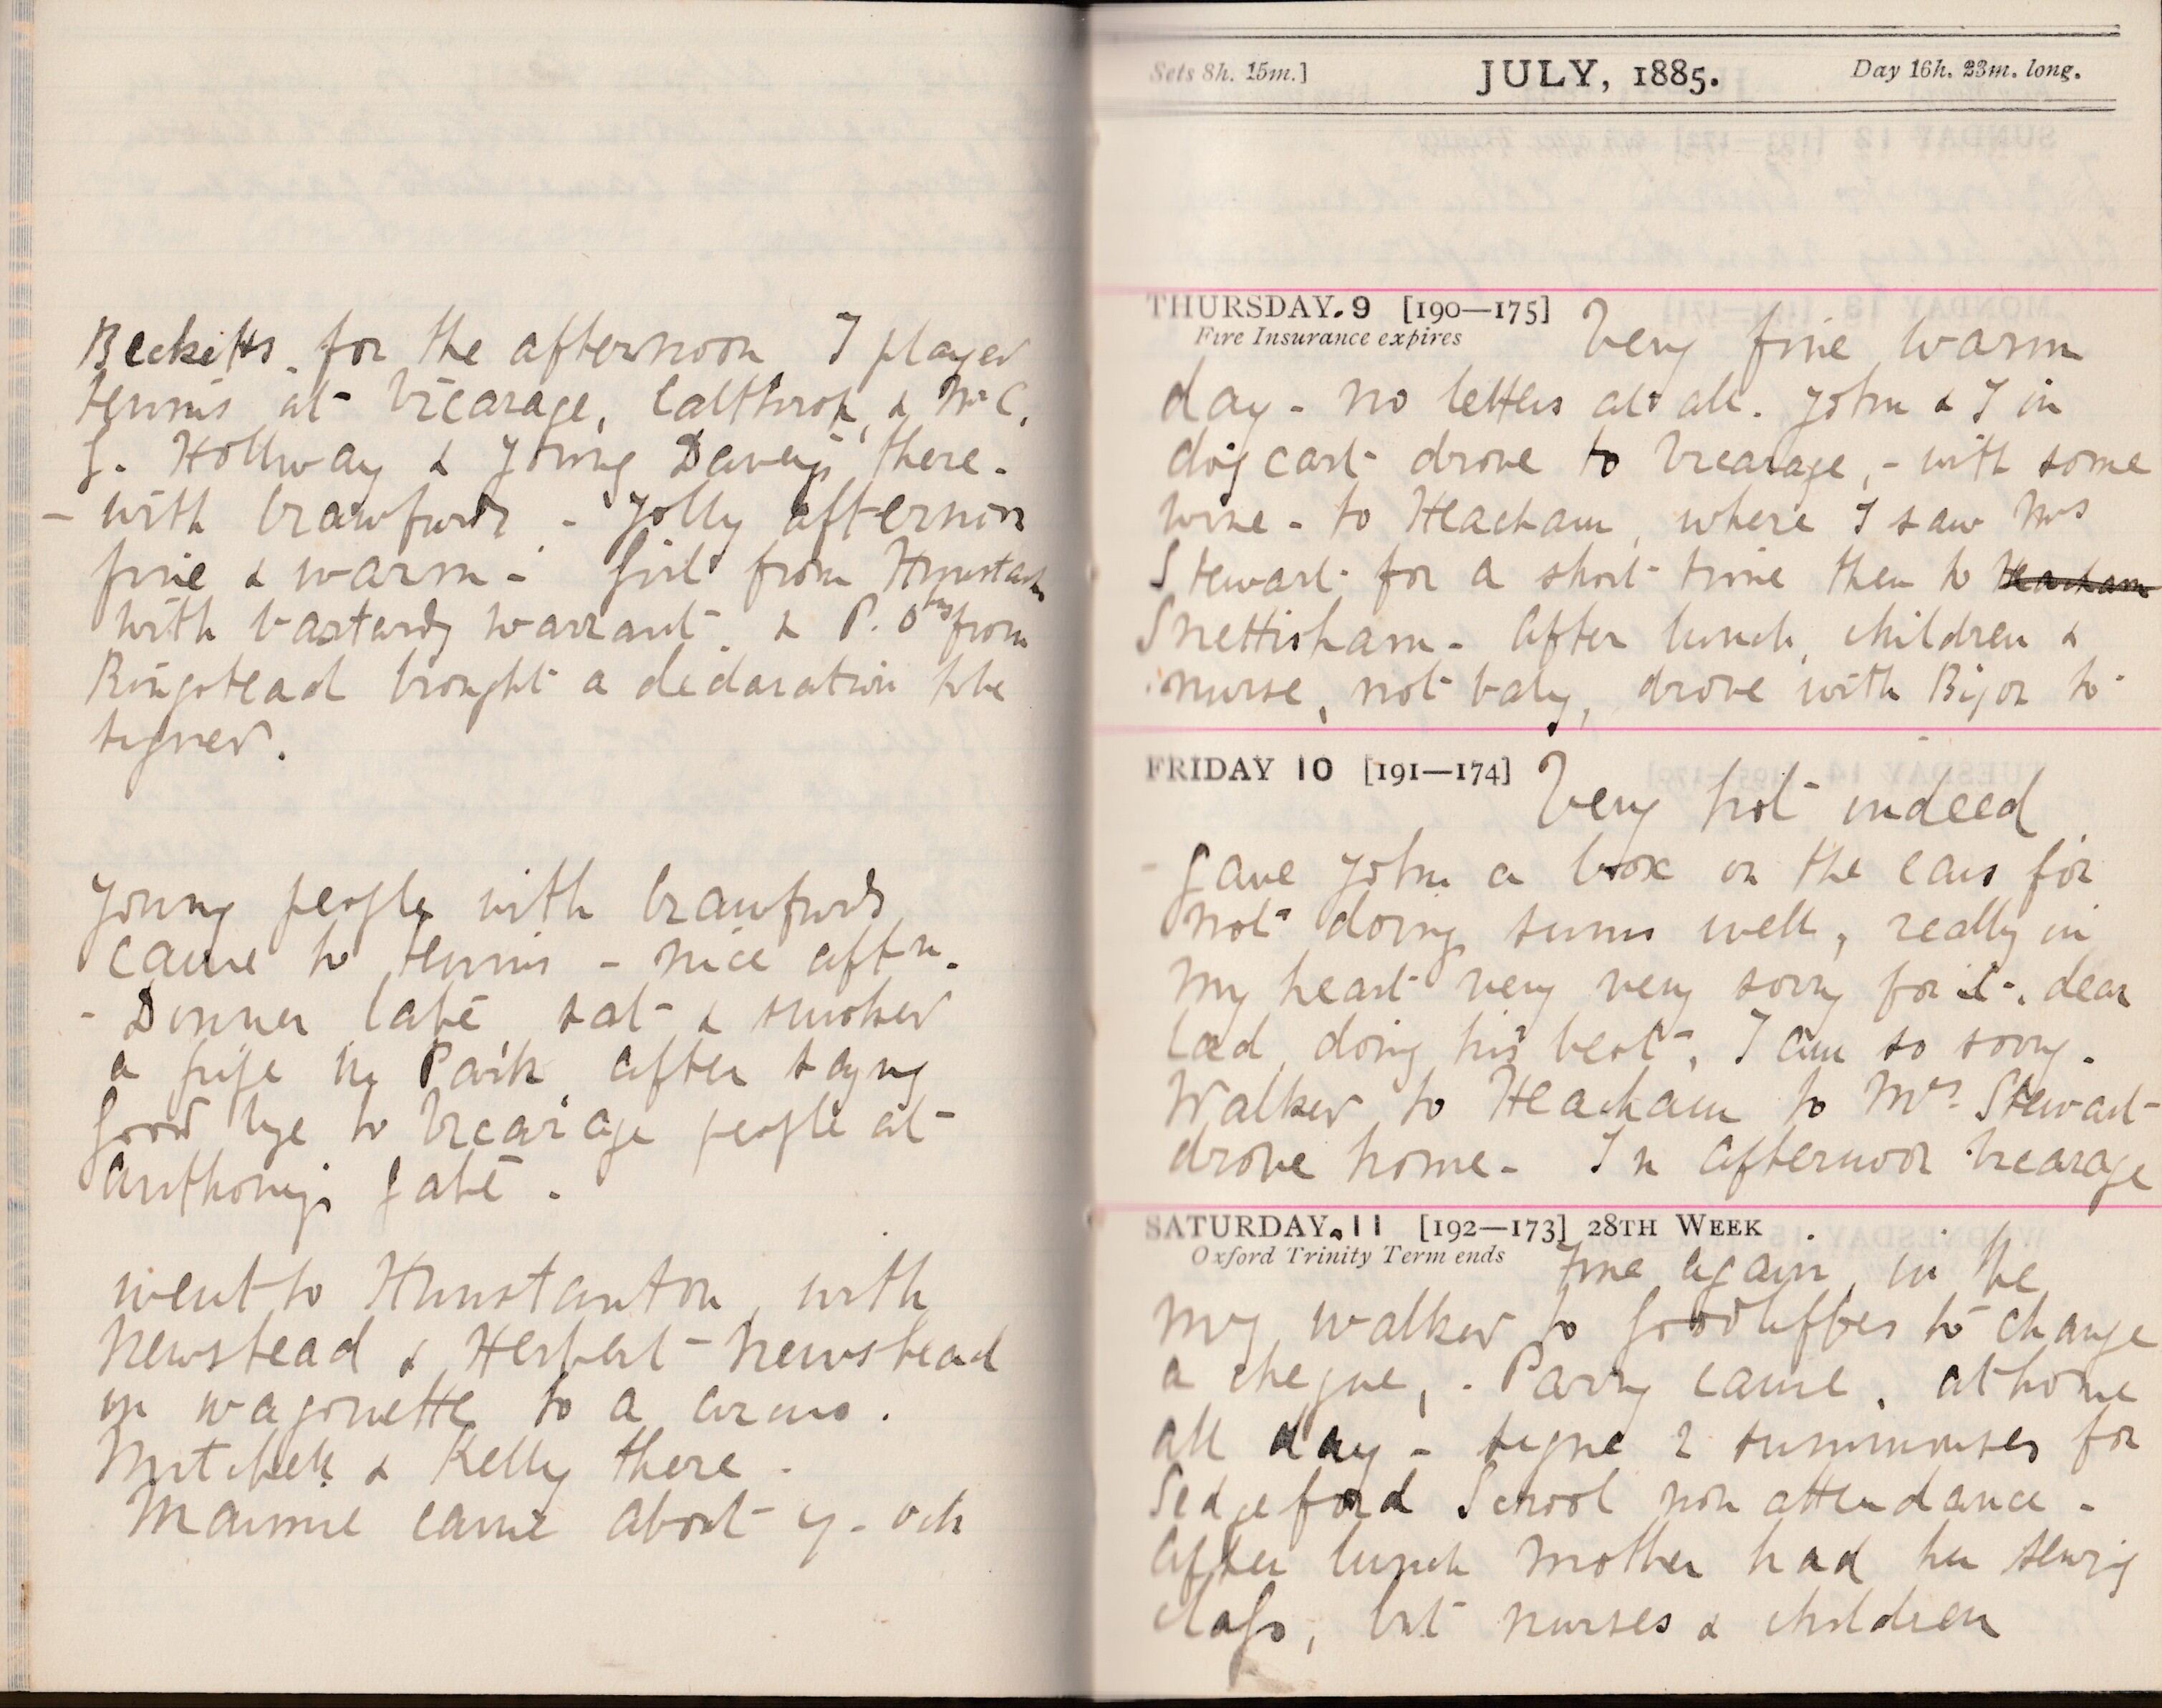 Becketts. for the afternoon I played
tennis at Vicarage, Calthrop, & Mrs C,
G. Hollway & young Davey's there.
- with Crawfurds - Jolly afternoon
fine & warm - Girl from Hunstanton
with bastardy warrant. & P.O. from
Ringstead brought a declaration to be
signed.
young people with Crawfurds
came to tennis - nice aftn.
- Dinner late sat & smoked
a pipe in Park after saying
good bye to Vicarage people at
Anthony's gate.
went to Hunstanton, with
Newstead & Herbert Newstead
in wagonette to a circus.
Mitchell & Kelly there -
Mammie came about 9 - och
Sets 8h. 15m.]
JULY, 1885.
Day 16h. 23m. long.
THURSDAY. 9 [190—175] Very fine warm
Fire Insurance expires
day - no letters at all. John & I in
dog cart drove to Vicarage, - with some
wine - to Heacham, where I saw Mrs
Stewart for a short time then to Heacham
Snettisham - After lunch, children &
nurse, not baby, drove with Bijou to
FRIDAY 10 [191—174] Very hot indeed
- Gave John a box on the ears for
not doing sums well, really in
my heart very very sorry for it, dear
lad, doing his best, I am so sorry.
Walked to Heacham to Mrs. Stewart
drove home - In afternoon Vicarage
SATURDAY. 11 [192—173] 28TH WEEK
Oxford Trinity Term ends
Fine again, in the
mg walked to Goodliffes to change
a cheque, - Parry came, at home
all day - signe 2 summonses for
Sedgeford School non attendance -
After lunch Mother had her sewing
class, but nurses & children